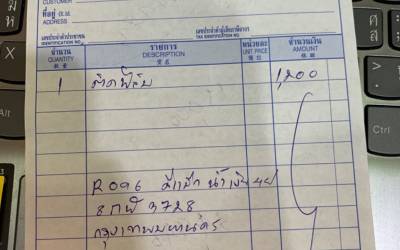 CUSTOMER
ที่อยู่
ADDRESS
เลขประจำตัวประชาชน เลขประจำตัวผู้เสียภาษีอากร
IDENTIFICATION NO. TAX IDENTIFICATION NO.
จำนวน รายการ หน่วยละ จำนวนเงิน
QUANTITY DESCRIPTION UNIT PRICE AMOUNT
1 ติดฟิล์ม 1,200
R096
8กฬ 3728
กรุงเทพมหานคร